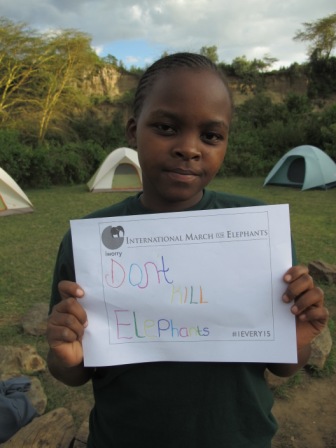 iworry
INTERNATIONAL MARCH FOR ELEPHANTS
Dont
KILL
ELephants
#IEVERY15